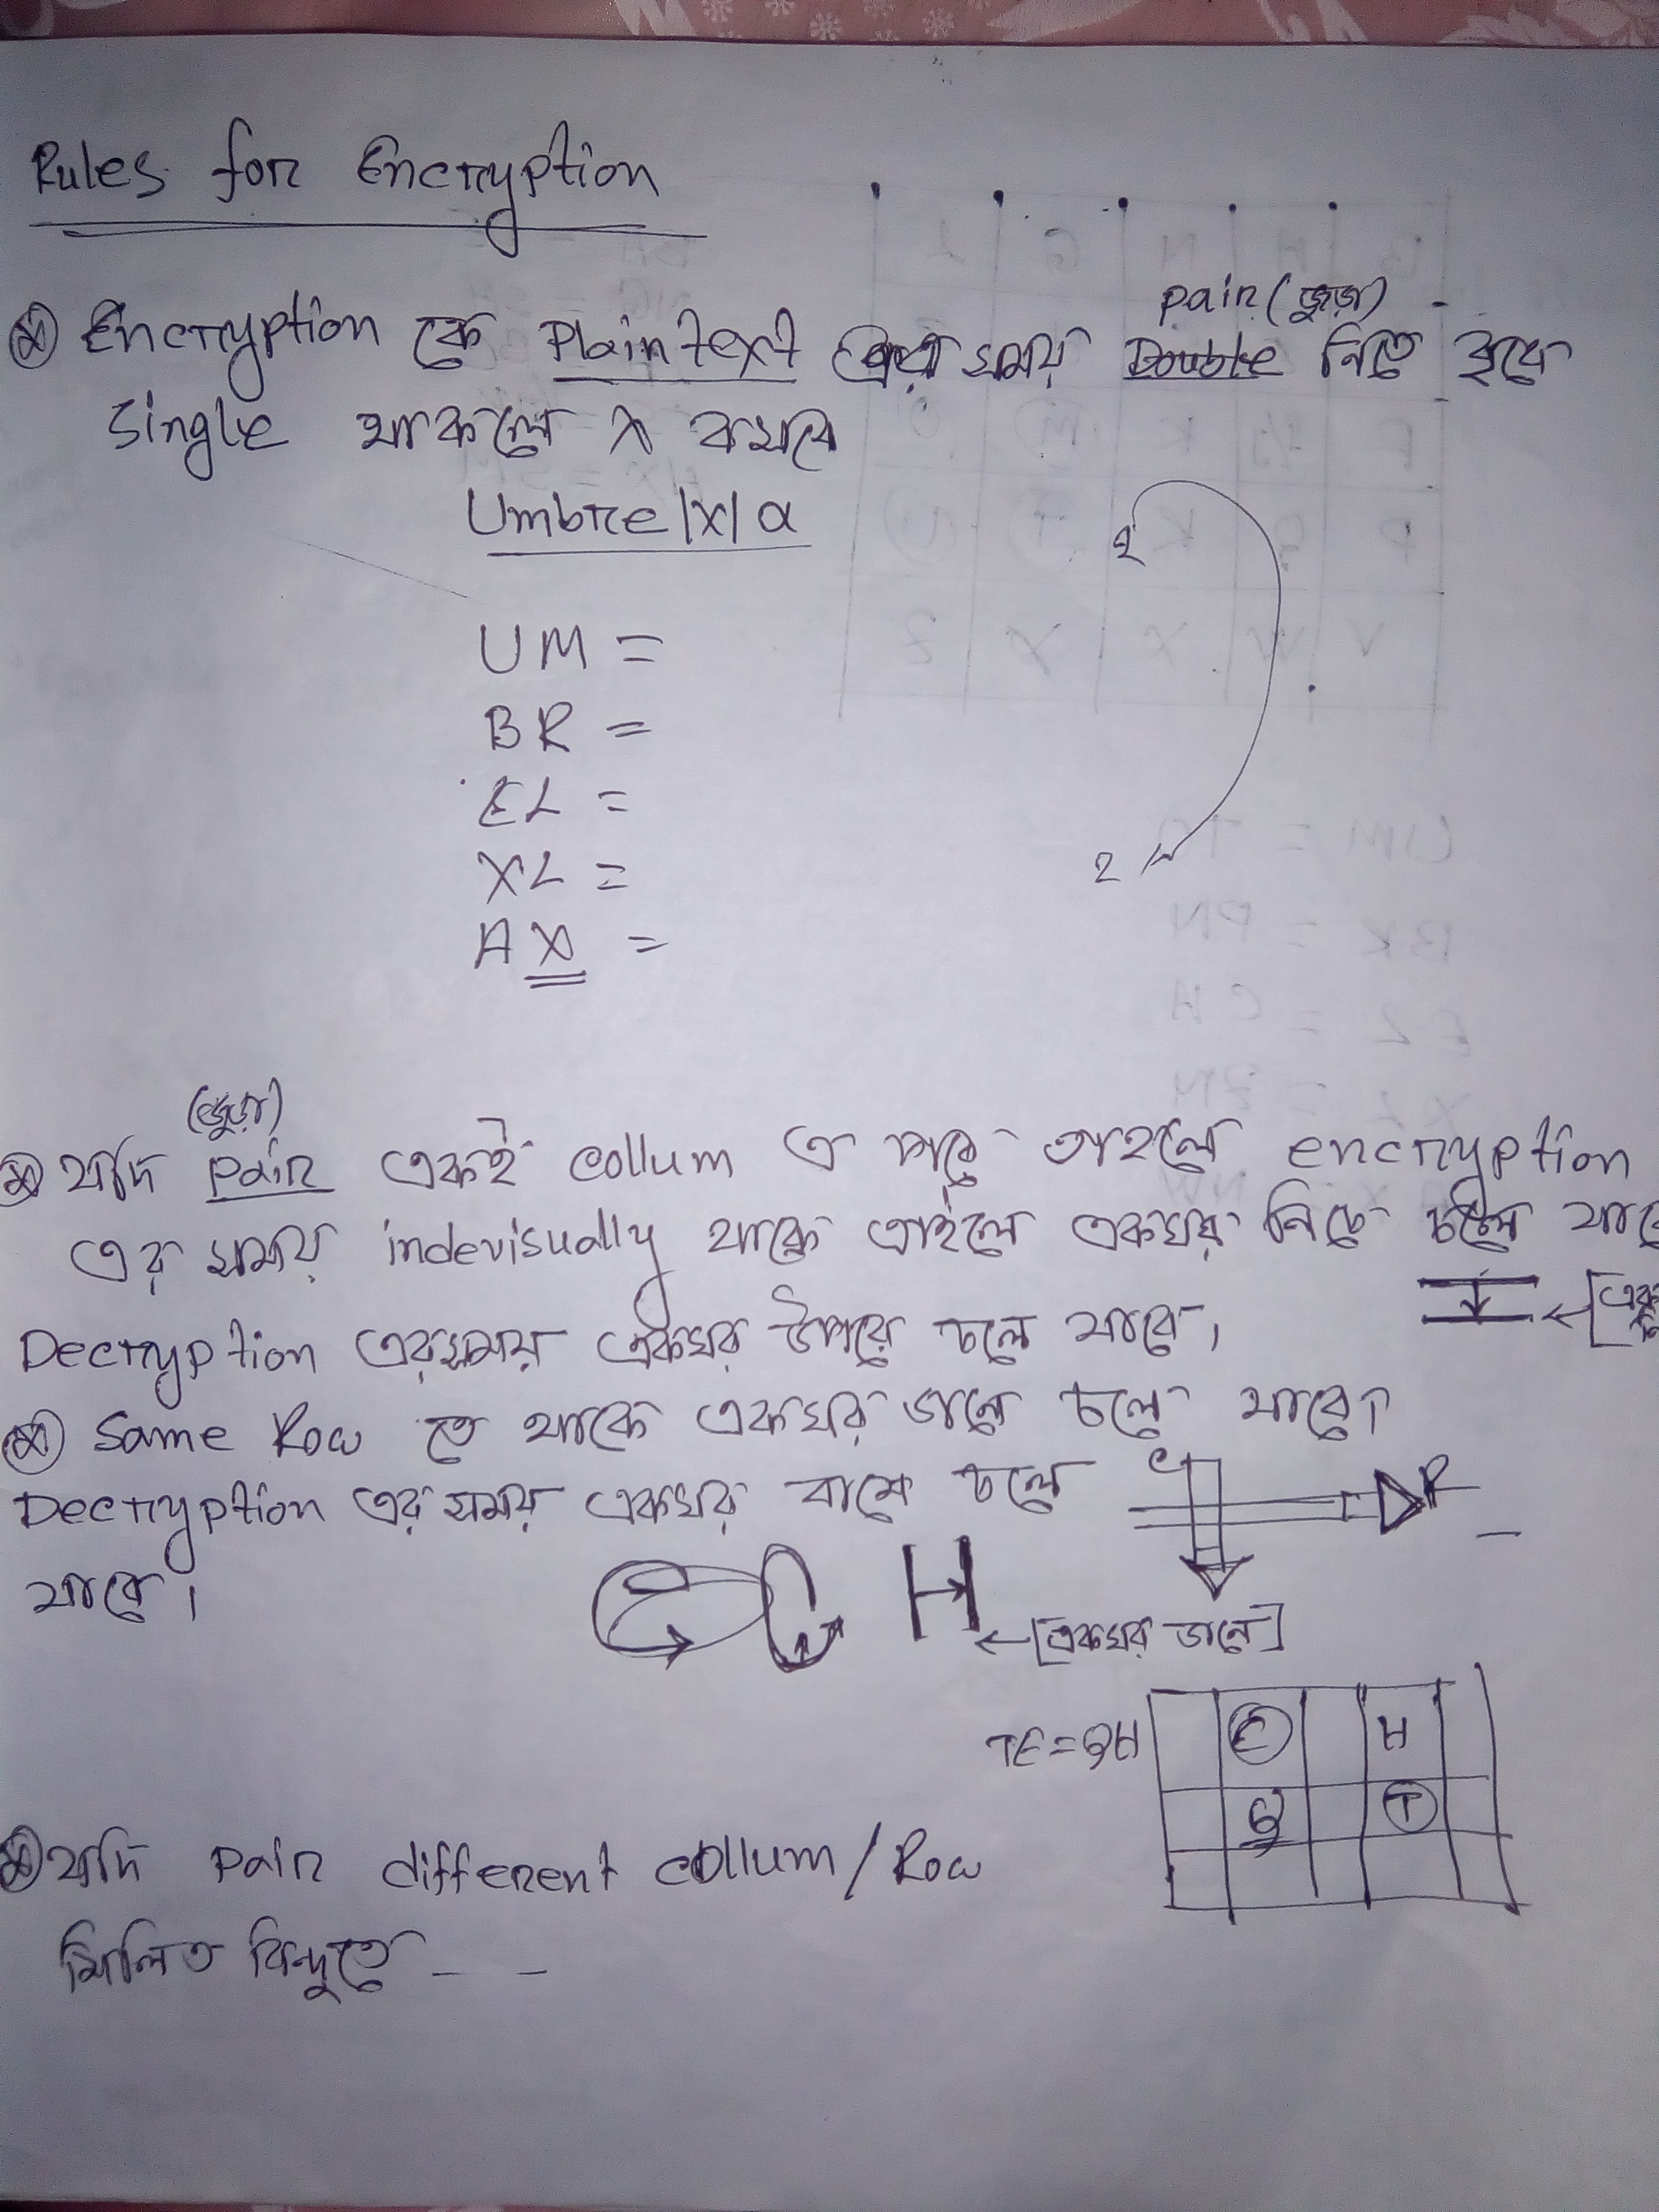 Rules for Encryption
pair (জুড়া)
Encryption কে Plaintext সময় Double নিতে হবে
single থাকলে X বসাবে
Umbre|x|a
1
UM =
BR =
EL =
2
XL =
AX =
(জুড়া)
যদি pair একই collum এ পরে তাহলে encryption
এর সময় indevisually থাকে তাহলে একঘর নিচে চলে যাবে
[এক
Decryption এরসময় একঘর উপরে চলে যাবে।
Same Row তে থাকে একঘর ডানে চলে যাবে।
C
R
Decryption এর সময় একঘর বামে চলে
যাবে।
[একঘর ডানে]
TE=QH
E H
Q T
যদি pair different collum/Row
মিলিত বিন্দুতে - -